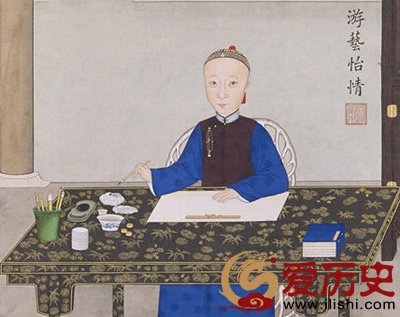 游藝怡情
爱历史
www.ilishi.com